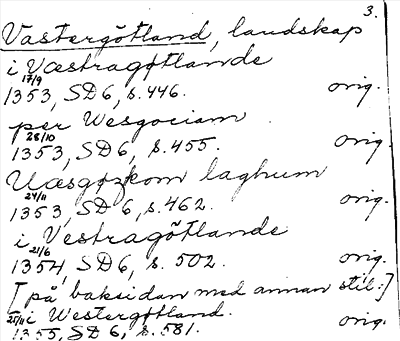 3.
Västergötland, landskap
i Væstragøtlande
17/9
1353, SD 6, s. 446. orig.
per Wesgociam
28/10
1353, SD 6, s. 455. orig.
Uæsgøzkom laghum
24/11
1353, SD 6, s. 462. orig.
i Vestragötlande
21/6
1354, SD 6, s. 502. orig.
[på baksidan med annan stil:]
i Westergøtland.
25/11
1355, SD 6, s. 581. orig.